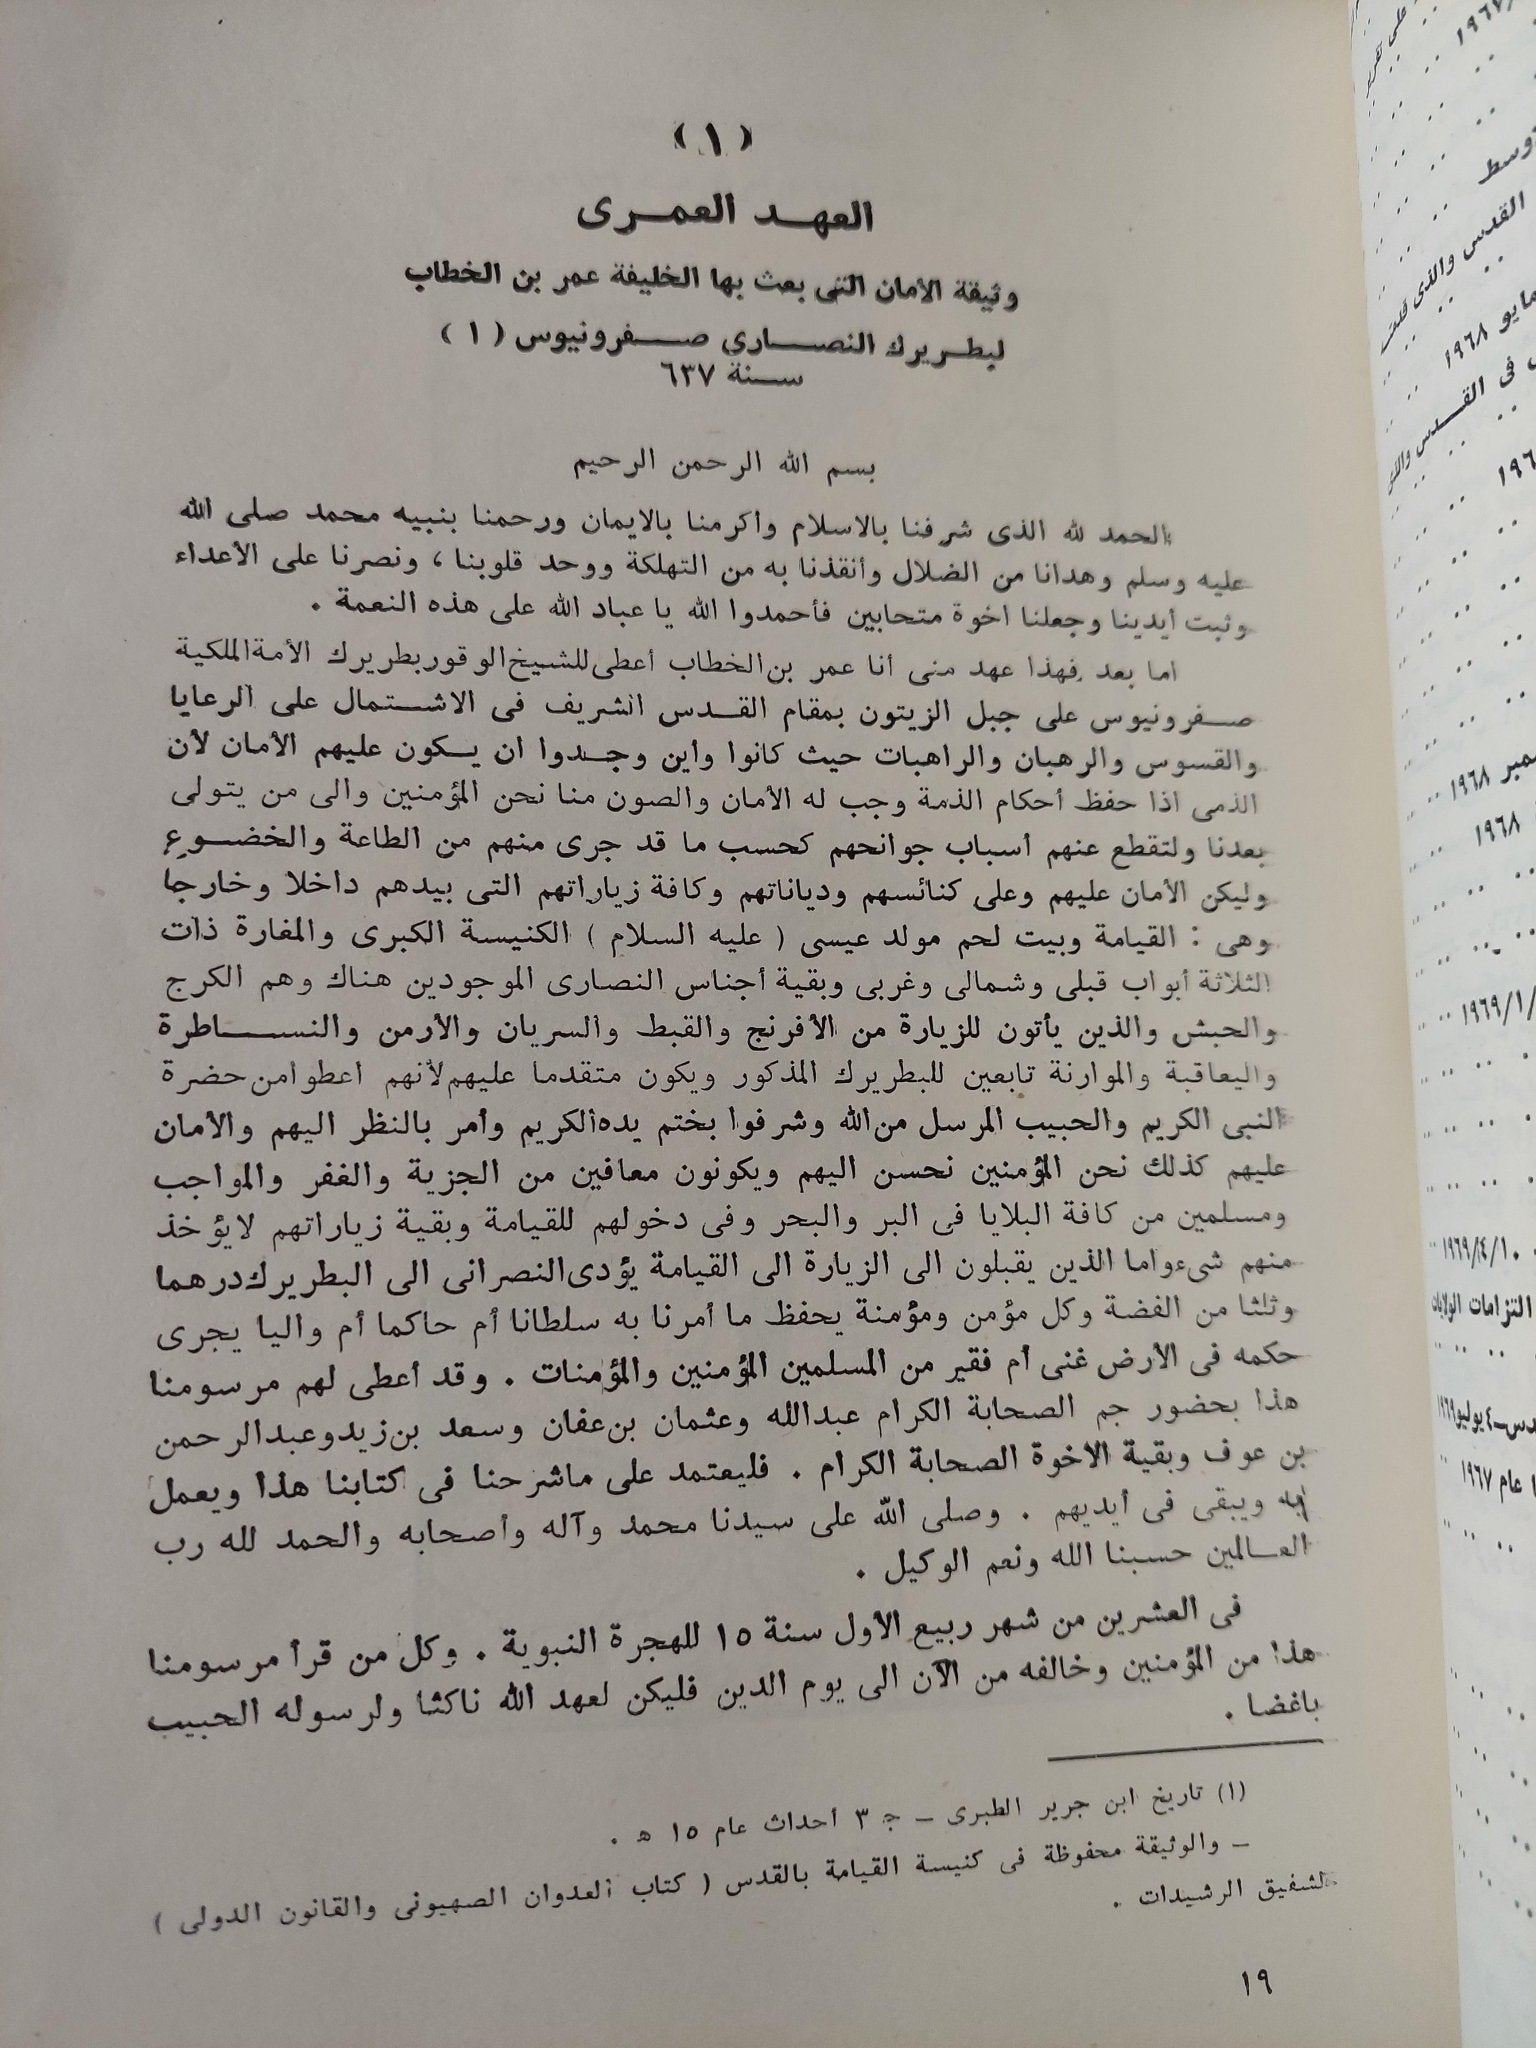 ( ١ )
العهد العمرى
وثيقة الأمان التى بعث بها الخليفة عمر بن الخطاب
لبطريرك النصارى صفرونيوس ( ١ )
سنة ٦٣٧
بسم الله الرحمن الرحيم
الحمد لله الذى شرفنا بالاسلام وأكرمنا بالايمان ورحمنا بنبيه محمد صلى الله
عليه وسلم وهدانا من الضلال وأنقذنا به من التهلكة ووحد قلوبنا ، ونصرنا على الأعداء
وثبت أيدينا وجعلنا اخوة متحابين فأحمدوا الله يا عباد الله على هذه النعمة .
اما بعد فهذا عهد منى أنا عمر بن الخطاب أعطى للشيخ الوقور بطريرك الأمة الملكية
صفرونيوس على جبل الزيتون بمقام القدس الشريف فى الاشتمال على الرعايا
والقسوس والرهبان والراهبات حيث كانوا وأين وجدوا ان يكون عليهم الأمان لأن
الذمى اذا حفظ أحكام الذمة وجب له الأمان والصون منا نحن المؤمنين والى من يتولى
بعدنا ولتقطع عنهم أسباب جوانحهم كحسب ما قد جرى منهم من الطاعة والخضوع
وليكن الأمان عليهم وعلى كنائسهم ودياناتهم وكافة زياراتهم التى بيدهم داخلا وخارجا
وهى : القيامة وبيت لحم مولد عيسى ( عليه السلام ) الكنيسة الكبرى والمغارة ذات
الثلاثة أبواب قبلى وشمالى وغربى وبقية أجناس النصارى الموجودين هناك وهم الكرج
والحبش والذين يأتون للزيارة من الأفرنج والقبط والسريان والأرمن والنساطرة
واليعاقبة والموارنة تابعين للبطريرك المذكور ويكون متقدما عليهم لأنهم أعطوا من حضرة
النبى الكريم والحبيب المرسل من الله وشرفوا بختم يده الكريم وأمر بالنظر اليهم والأمان
عليهم كذلك نحن المؤمنين نحسن اليهم ويكونون معافين من الجزية والغفر والمواجب
ومسلمين من كافة البلايا فى البر والبحر وفى دخولهم للقيامة وبقية زياراتهم لايؤخذ
منهم شىء واما الذين يقبلون الى الزيارة الى القيامة يؤدى النصرانى الى البطريرك درهما
وثلثا من الفضة وكل مؤمن ومؤمنة يحفظ ما أمرنا به سلطانا أم حاكما أم واليا يجرى
حكمه فى الأرض غنى أم فقير من المسلمين المؤمنين والمؤمنات . وقد أعطى لهم مرسومنا
هذا بحضور جم الصحابة الكرام عبدالله وعثمان بن عفان وسعد بن زيد وعبد الرحمن
بن عوف وبقية الاخوة الصحابة الكرام . فليعتمد على ماشرحنا فى كتابنا هذا ويعمل
به ويبقى فى أيديهم . وصلى الله على سيدنا محمد وآله وأصحابه والحمد لله رب
العالمين حسبنا الله ونعم الوكيل .
فى العشرين من شهر ربيع الأول سنة ١٥ للهجرة النبوية . وكل من قرأ مرسومنا
هذا من المؤمنين وخالفه من الآن الى يوم الدين فليكن لعهد الله ناكثا ولرسوله الحبيب
باغضا .
(١) تاريخ ابن جرير الطبرى – ج ٣ أحداث عام ١٥ هـ .
– والوثيقة محفوظة فى كنيسة القيامة بالقدس ( كتاب العدوان الصهيونى والقانون الدولى )
لشفيق الرشيدات .
١٩
توسط
القدس والذى
مايو ١٩٦٨
فى القدس
١٩٦٨
١٩٦٨
١٩٦٩/١/
١٩٦٩/٤/١٠
التزامات الولايات
٤ يوليو ١٩٦٩
عام ١٩٦٧